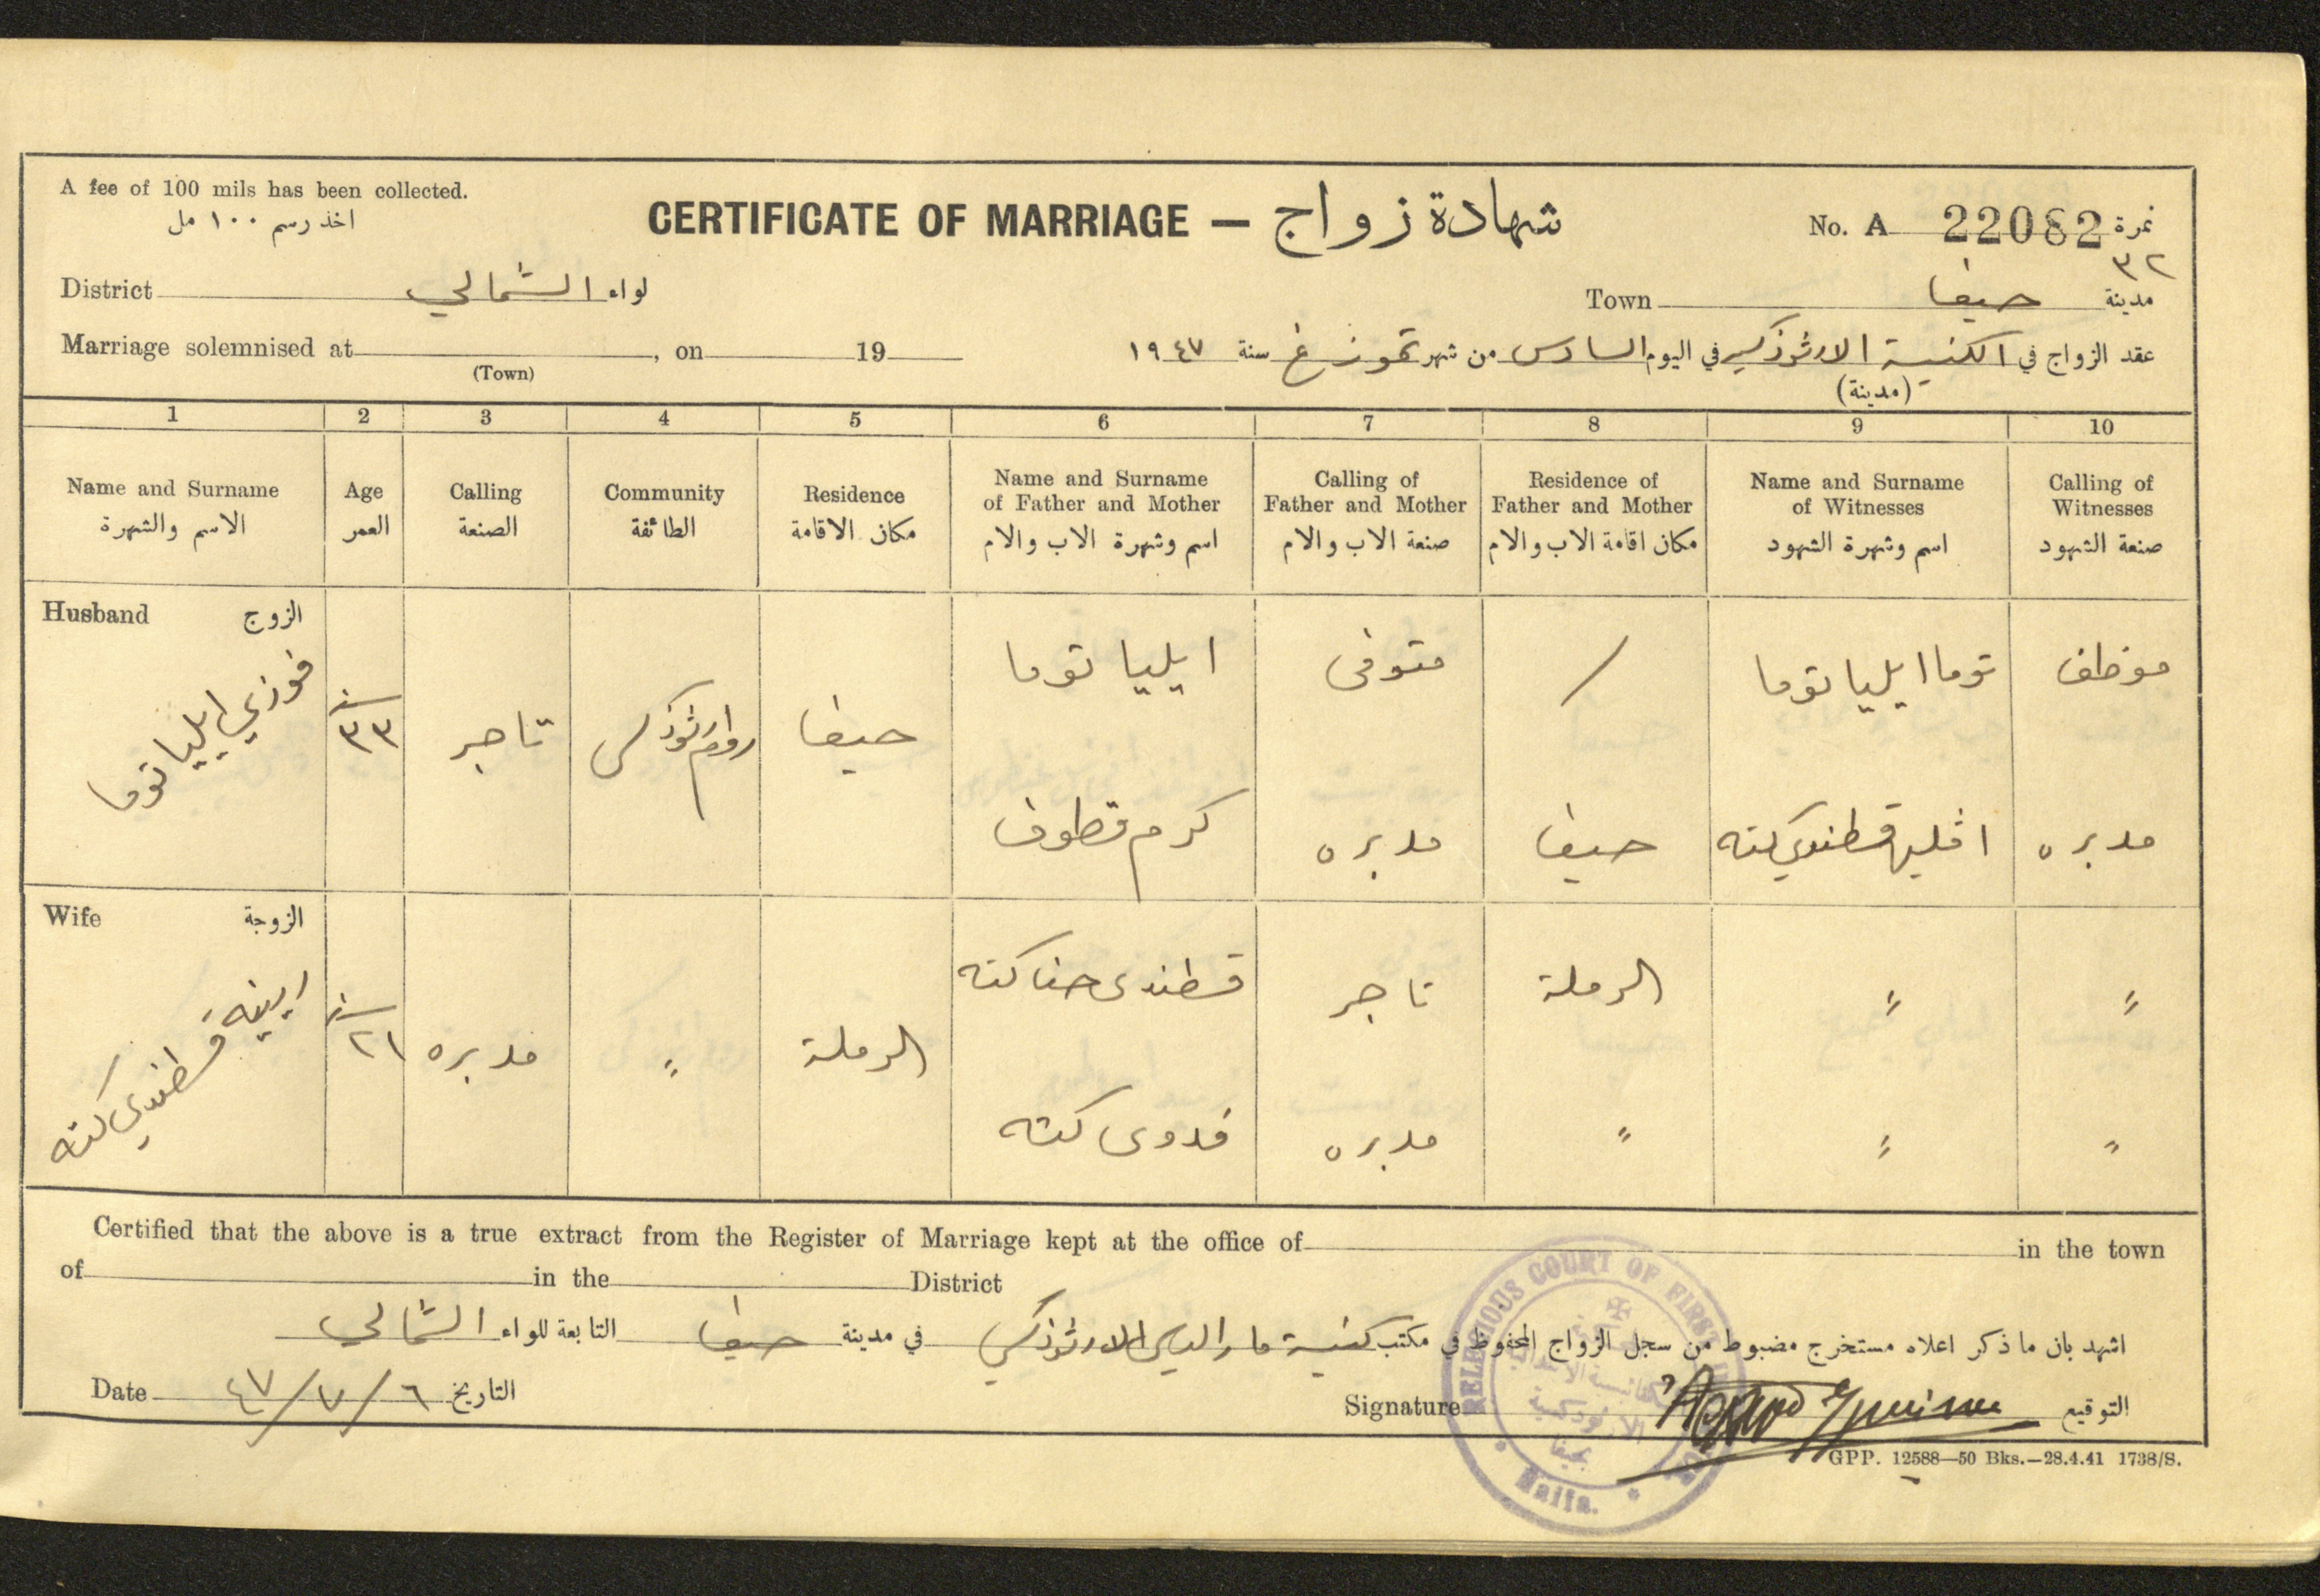 A fee of 100 mils has been collected.
اخذ رسم ١٠٠ مل
CERTIFICATE OF MARRIAGE — شهادة زواج
No. A 22082 نمرة
٣٢
District الشمالي لواء
Town حيفا مدينة
Marriage solemnised at , on 19
(Town)
عقد الزواج في الكنيسة الارثوذكسية في اليوم السادس من شهر تموز سنة ١٩٤٧
(مدينة)
1 2 3 4 5 6 7 8 9 10
Name and Surname
الاسم والشهرة
Age
العمر
Calling
الصنعة
Community
الطائفة
Residence
مكان الاقامة
Name and Surname
of Father and Mother
اسم وشهرة الاب والام
Calling of
Father and Mother
صنعة الاب والام
Residence of
Father and Mother
مكان اقامة الاب والام
Name and Surname
of Witnesses
اسم وشهرة الشهود
Calling of
Witnesses
صنعة الشهود
Husband الزوج
فوزي ايليا توما
سنة
٣٣
تاجر
روم ارثوذكس
حيفا
ايليا توما
متوفى
/
توما ايليا توما
موظف
كرم قطوف
مدبره
حيفا
قسطندي كته
مدبره
Wife الزوجة
ايرينه قسطندي كته
سنة
٢١
مدبره
〃
الرملة
قسطندى حنا كته
تاجر
الرملة
〃
〃
فدوى كته
مدبره
〃
〃
〃
Certified that the above is a true extract from the Register of Marriage kept at the office of in the town
of in the District
اشهد بان ما ذكر اعلاه مستخرج مضبوط من سجل الزواج المحفوظ في مكتب كنيسة مار الياس الارثوذكسي في مدينة حيفا التابعة للواء الشمالي
Date ٦/٧/٤٧ التاريخ
Signature التوقيع
RELIGIOUS COURT OF FIRST
الارثوذكسية
بحيفا
Haifa.
GPP. 12588—50 Bks.—28.4.41 1738/S.